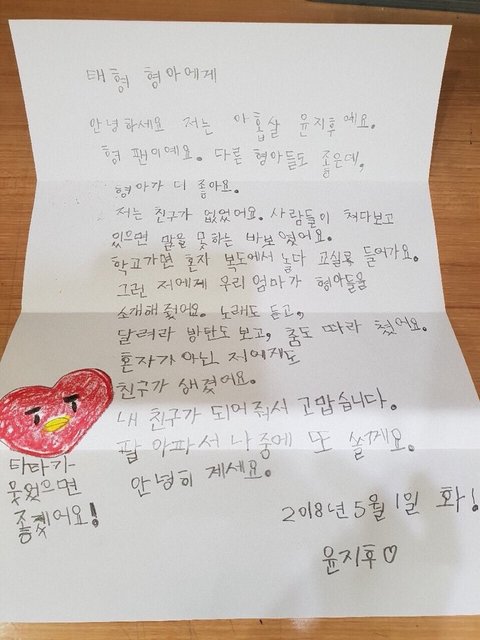 태형 형아에게
안녕하세요 저는 아홉살 윤지후예요.
형 팬이예요. 다른 형아들도 좋은데,
형아가 더 좋아요.
저는 친구가 없었어요. 사람들이 쳐다보고
있으면 말을 못하는 바보였어요.
학교가면 혼자 복도에서 놀다 교실로 들어가요.
그런 저에게 우리 엄마가 형아들을
소개해 줬어요. 노래도 듣고,
달려라 방탄도 보고, 춤도 따라 췄어요.
혼자가 아닌 저에게도
친구가 생겼어요.
내 친구가 되어줘서 고맙습니다.
팔 아파서 나중에 또 쓸게요.
안녕히 계세요.
타타가
웃었으면
좋겠어요!
2018년 5월 1일 화!
윤지후♡